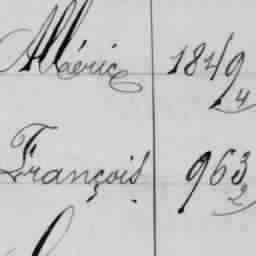 Albéric 1849 4
François 963 2